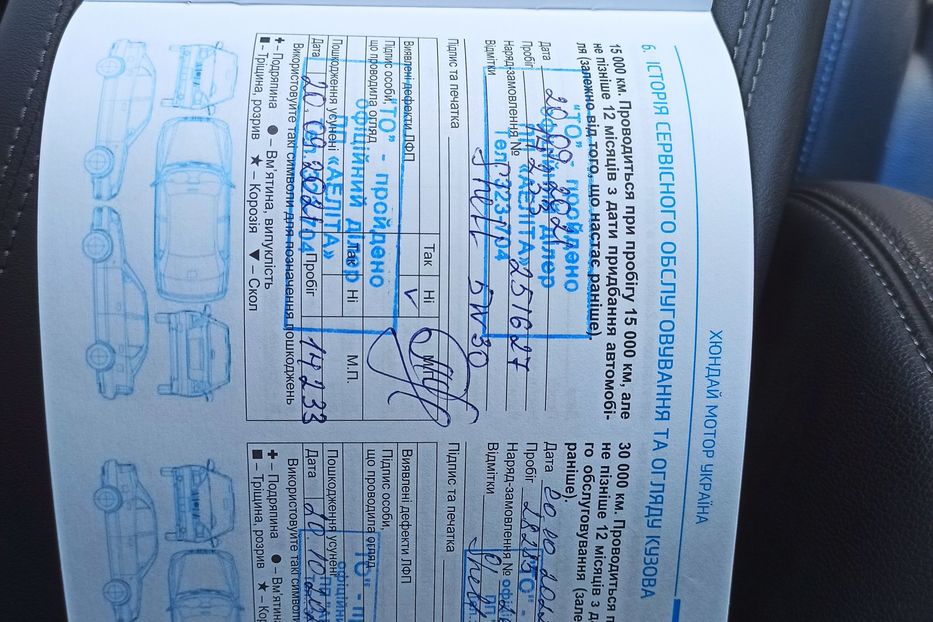 ХЮНДАЙ МОТОР УКРАЇНА
6. ІСТОРІЯ СЕРВІСНОГО ОБСЛУГОВУВАННЯ ТА ОГЛЯДУ КУЗОВА
15 000 км. Проводиться при пробігу 15 000 км, але
не пізніше 12 місяців з дати придбання автомобі-
ля (залежно від того, що настає раніше).
Дата 20.09.2021
Пробіг 14233
Наряд-замовлення № 251627
Відмітки Shell 5W30
"ТО" - пройдено
офіційний ділер
ПП «АЕЛІТА»
Підпис та печатка
Так
Ні
Виявлені дефекти ЛФП
Підпис особи,
що проводила огляд
М.П.
Пошкодження усунені
Так
Ні
Дата 20.09.2021 Пробіг 14233
"ТО" - пройдено
офіційний ділер
ПП «АЕЛІТА»
Використовуйте такі символи для позначення пошкоджень
✚ – Подряпина ● – Вм'ятина, випуклість
■ – Тріщина, розрив ★ – Корозія ▼ – Скол
30 000 км. Проводиться п
не пізніше 12 місяців з д
го обслуговування (зале
раніше).
Дата
Пробіг
Наряд-замовлення №
Відмітки
"ТО" -
Підпис та печатка
Виявлені дефекти ЛФП
Підпис особи,
що проводила огляд
Пошкодження усунені
Дата
"ТО" - п
офіційни
Використовуйте такі символи
✚ – Подряпина ● – Вм'ятина
■ – Тріщина, розрив ★ – Ко